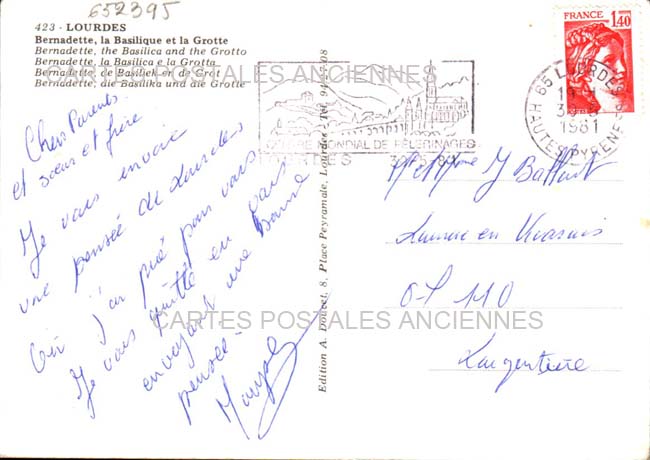 652395
423 - LOURDES
Bernadette, la Basilique et la Grotte
Bernadette, the Basilica and the Grotto
Bernadette, la Basilica e la Grotta
Bernadette, de Basiliek en de Grot
Bernadette, die Basilika und die Grotte
CARTES POSTALES ANCIENNES
FRANCE
1,40
65 LOURDES
1981
HAUTES PYRENEES
MONDIAL DE PÈLERINAGES
Chers Parents
et sœur et frère
Je vous envoie
une pensée de Lourdes
J'ai prié pour vous
Je vous quitte en vous
envoyant une bonne
pensée -
Edition A. Doucet, 8, Place Peyramale, Lourdes - Tél.
et Mme J
en Vivarais
07 110
Largentière
CARTES POSTALES ANCIENNES